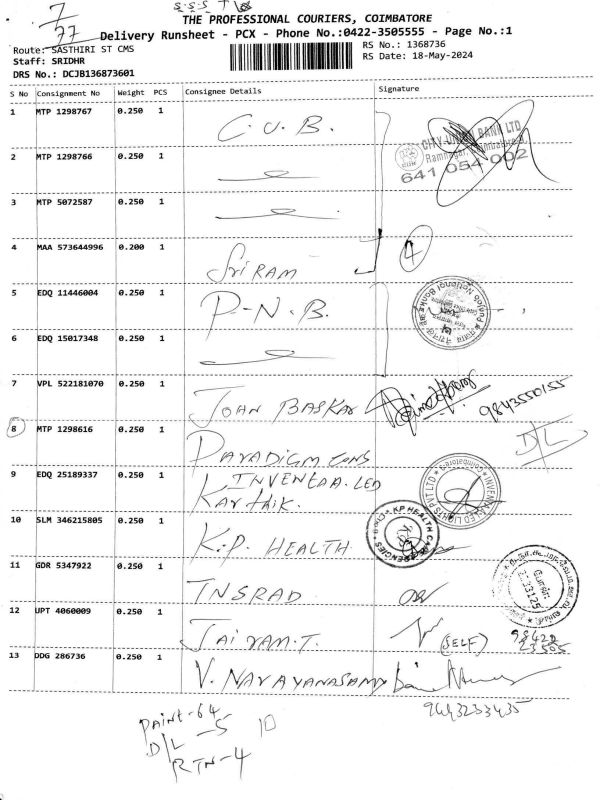 7/77
S.S.S T
THE PROFESSIONAL COURIERS, COIMBATORE
Delivery Runsheet - PCX - Phone No.:0422-3505555 - Page No.:1
Route: SASTHIRI ST CMS
RS No.: 1368736
Staff: SRIDHR
RS Date: 18-May-2024
DRS No.: DCJB136873601
S No Consignment No Weight PCS Consignee Details Signature
1 MTP 1298767 0.250 1 C.U.B.
CITY UNION BANK LTD
Ramnagar, Coimbatore
641 054 002
2 MTP 1298766 0.250 1
3 MTP 5072587 0.250 1
4 MAA 573644996 0.200 1 SriRAM 4
5 EDQ 11446004 0.250 1 P-N.B.
6 EDQ 15017348 0.250 1
7 VPL 522181070 0.250 1 JOHN BASKAR 9843550155
8 MTP 1298616 0.250 1 PARADIGM CONS D/L
9 EDQ 25189337 0.250 1 INVENTAA.LED
Karthik.
INVENTAA LED LIGHTS PVT LTD
10 SLM 346215805 0.250 1 K.P. HEALTH
KP HEALTH CARE AGENCIES
11 GDR 5347922 0.250 1 TNSRAD
12 UPT 4060009 0.250 1 JAIRAM.T. (SELF) 98422
23505
13 DDG 286736 0.250 1 V. NARAYANASAMY
9443233435
PAINT-64
D/L -5 10
RTN-4